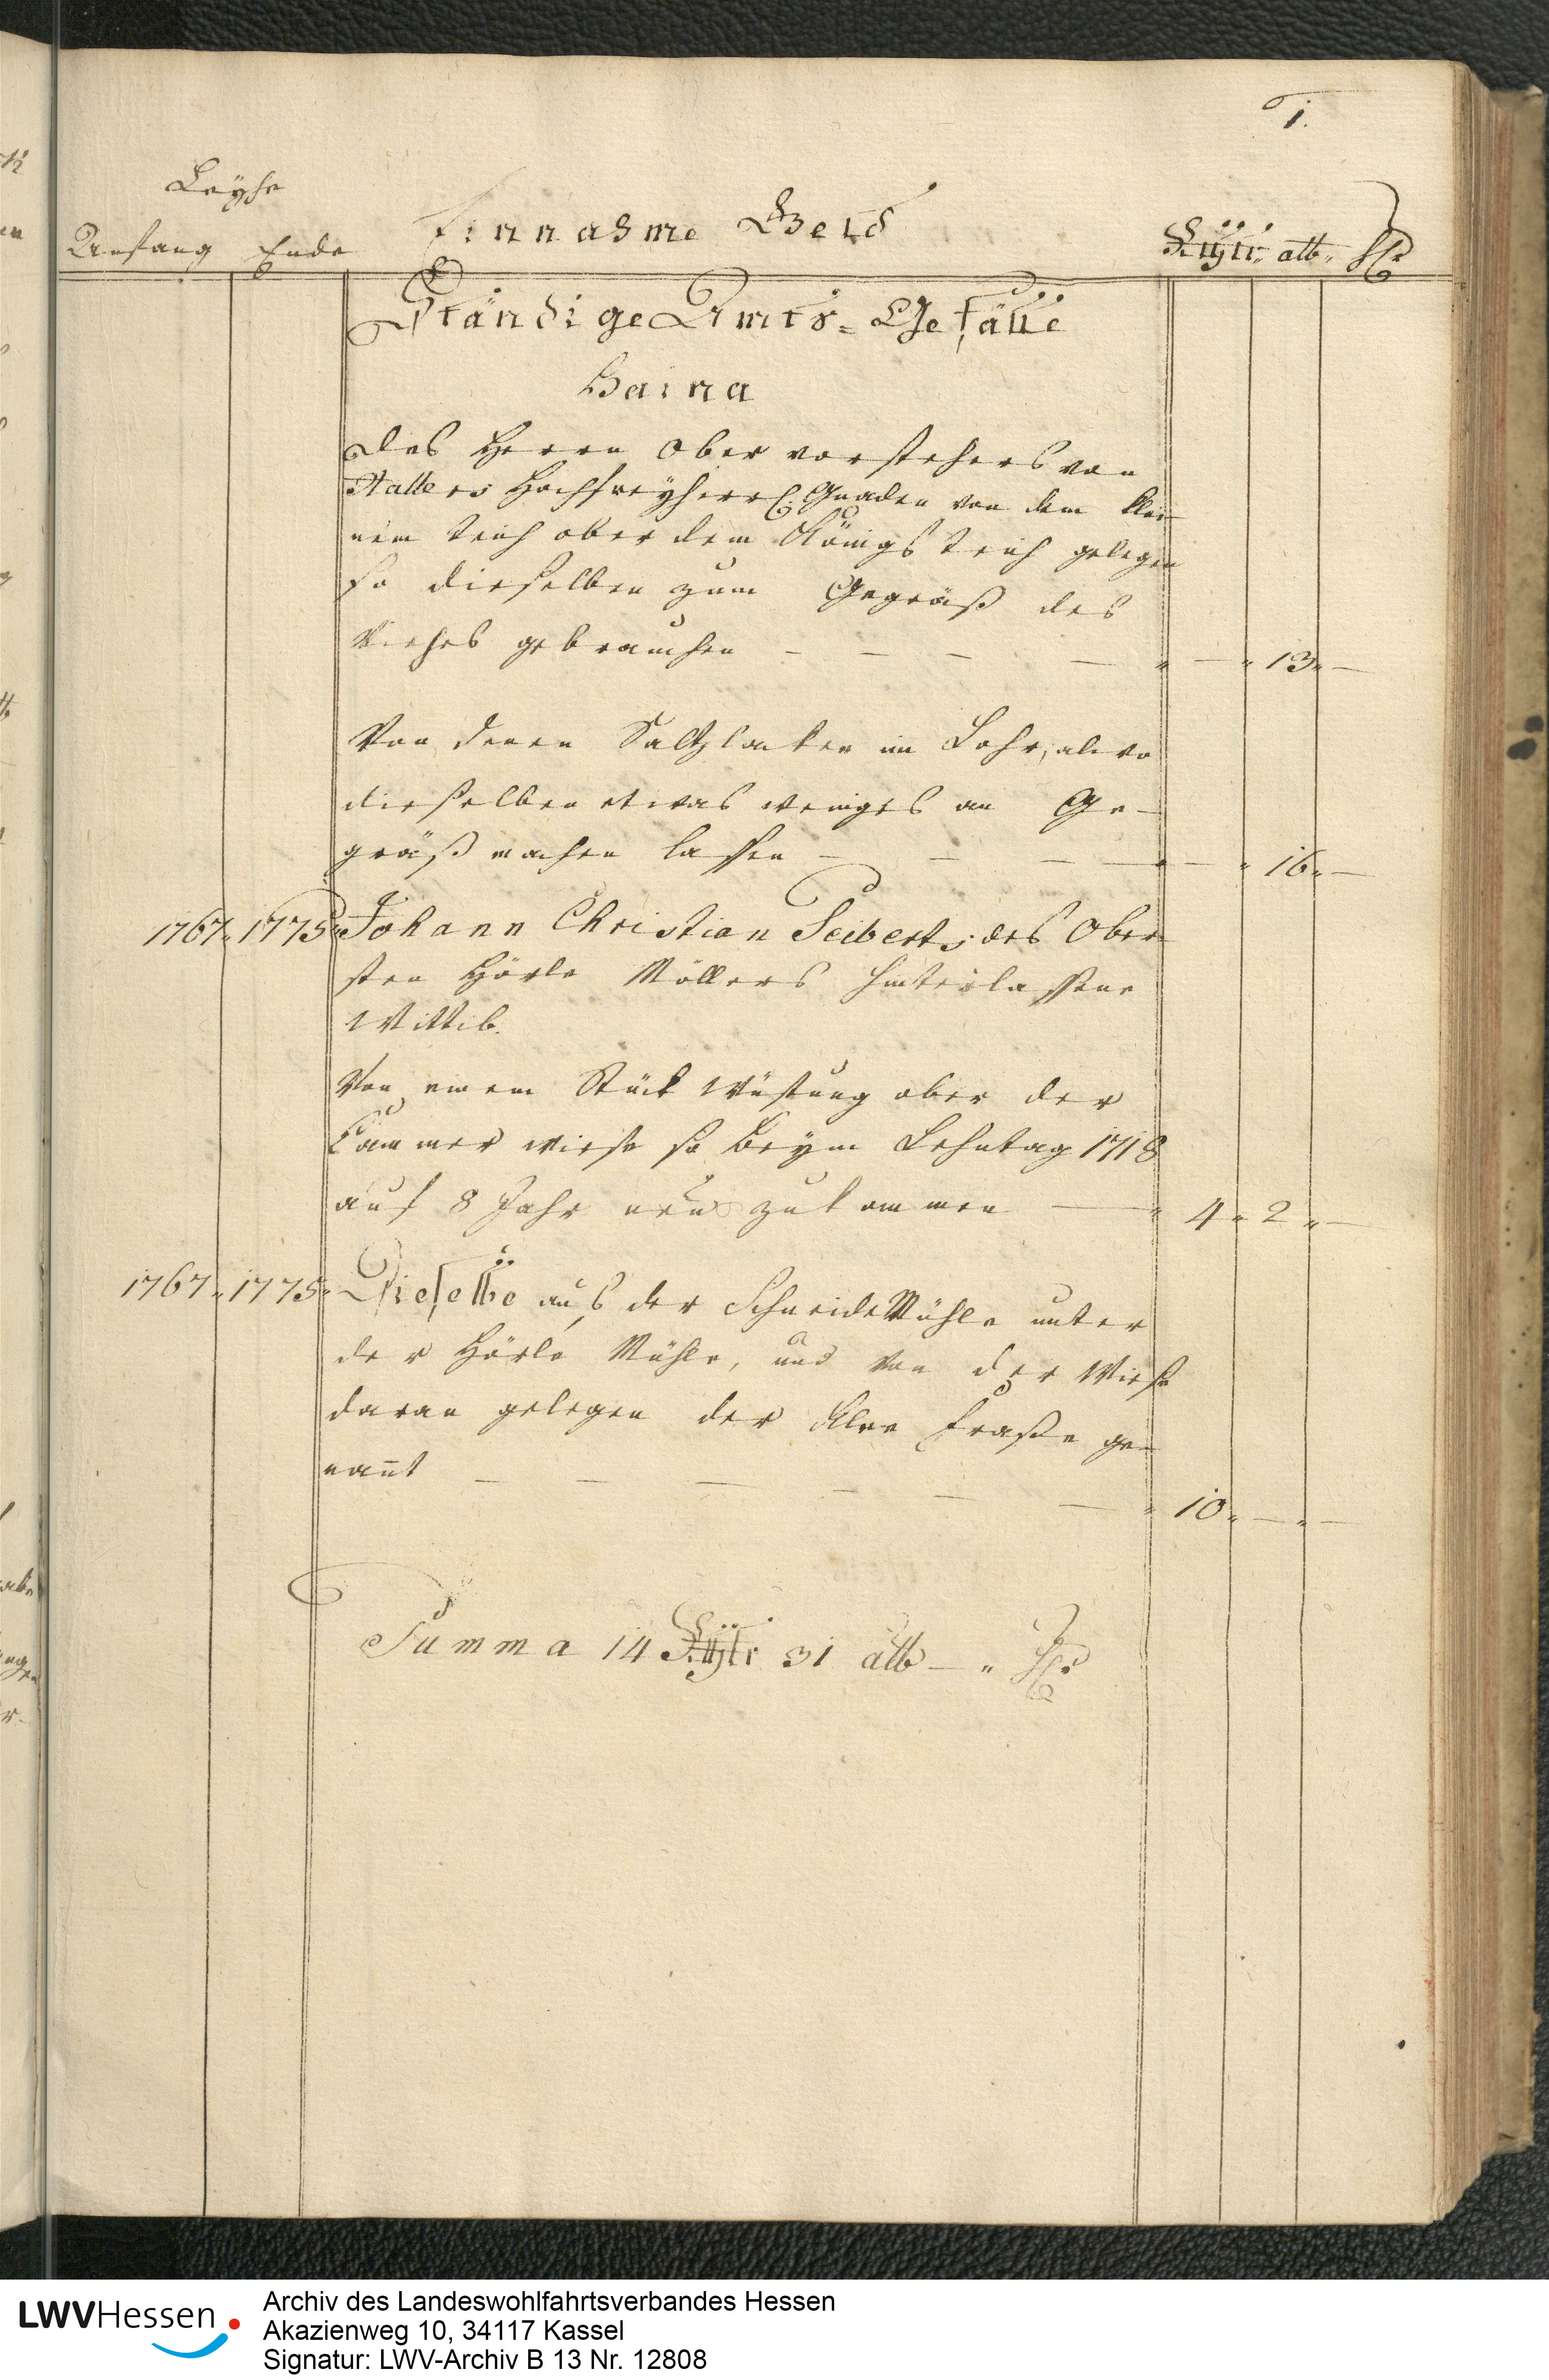 1.
Leyhe
Anfang Ende Einnahme Geld Rthlr. alb. hlr
Ständige Amts-Gefälle
Haina
Des Herrn Ober vorstehers von
Stallers Hochfreyherrl. Gnaden von dem klei
nem Teich ober dem Königs Teich gelegen
so dieselben zum Gegräß des
Viehes gebrauchen — — — — " — " 13 " —
Von denen Saltzlacken im Lohr, alwo
dieselben etwas weniges an Ge-
gräß machen lassen — — — — " — " 16 " —
1767. 1775. Johann Christian Seiberts, des Ober
sten Hörle Möllers hinterlassene
Wittib.
Von einem Stück Wüstung ober der
Cammer wiese so beym Lehntag 1718
auf 8 Jahr neu zukommen — " 4 " 2 " —
1767. 1775. Dieselbe aus der Schneide Mühle unter
der Hörle Mühle, und von der Wiese
daran gelegen der genannt
— — — — — — " 10 " — " —
Summa 14 Rthlr 31 alb — " hlr
LWVHessen
Archiv des Landeswohlfahrtsverbandes Hessen
Akazienweg 10, 34117 Kassel
Signatur: LWV-Archiv B 13 Nr. 12808